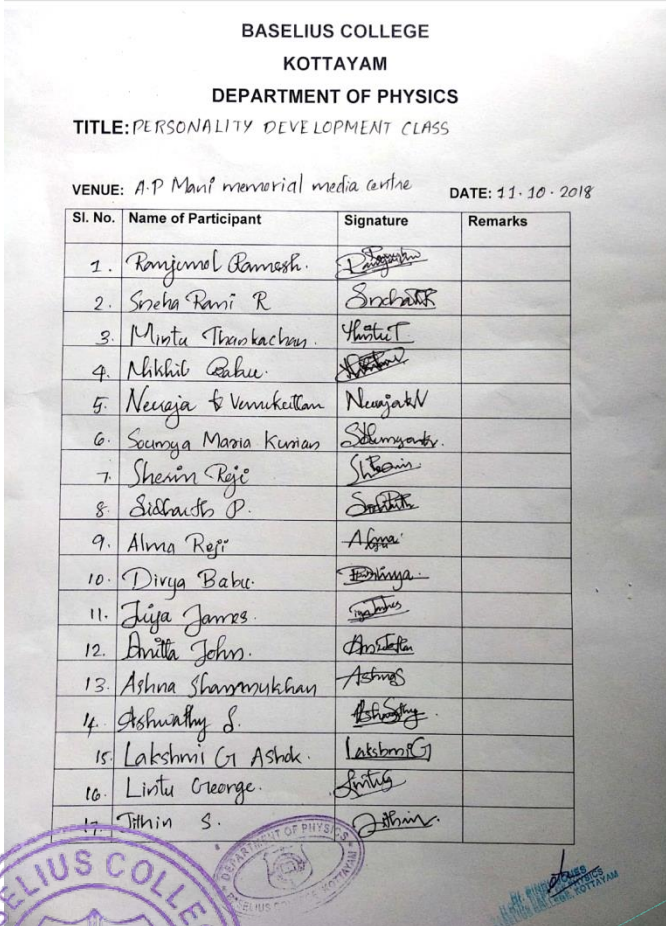 BASELIUS COLLEGE
KOTTAYAM
DEPARTMENT OF PHYSICS
TITLE: PERSONALITY DEVELOPMENT CLASS
VENUE: A.P Mani memorial media centre DATE: 11.10.2018
Sl. No. Name of Participant Signature Remarks
1. Ranjumol Ramesh.
2. Sneha Rani R
3. Mintu Thankachan. MintuT
4. Nikhil Babu.
5. Neeraja Venukuttan
6. Soumya Maria Kurian
7. Sherin Reji Sherin
8. Sidharth P.
9. Alma Reji Alma
10. Divya Babu.
11. Jiya James.
12. Anitta John.
13. Ashna Shanmukhan AshnaS
14. Ashwathy S.
15. Lakshmi G Ashok. LakshmiG
16. Lintu George. LintuG
17. Jithin S. Jithin
DEPARTMENT OF PHYSICS
KOTTAYAM
SELIUS COLLE
PHYSICS
COLLEGE, KOTTAYAM